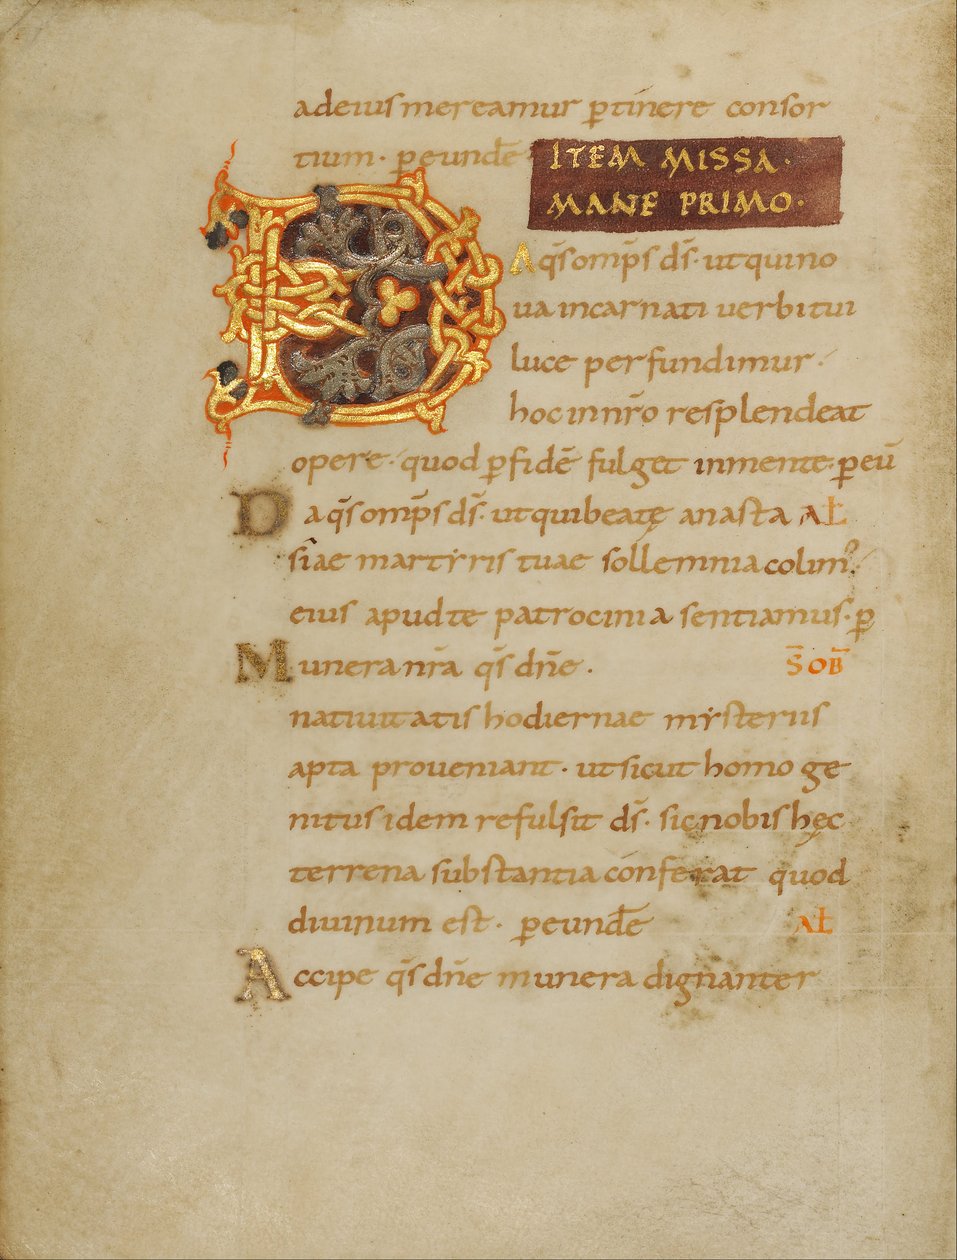 adeius mereamur p̄tinere consor
tium · p̄eundē
ITEM MISSA ·
MANE PRIMO ·
DA q̄s omp̄s d̄s · ut qui no
ua incarnati uerbi tui
luce perfundimur ·
hoc in nr̄o resplendeat
opere · quod p̄ fidē fulget in mente · p̄ eū
Da q̄s omp̄s d̄s · ut qui beatę anasta AL̄
siae martyris tuae sollemnia colim̉
eius apud te patrocinia sentiamus · p̄
Munera nr̄a q̄s dn̄e · S̄ OB̄
natiuitatis hodiernae mysteriis
apta proueniant · ut sicut homo ge
nitus idem refulsit d̄s · sic nobis hęc
terrena substantia conferat quod
diuinum est · p̄eundē AL̄
Accipe q̄s dn̄e munera dignanter